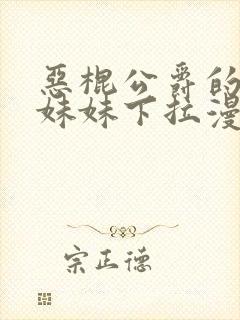 惡棍公爵的
妹妹下拉漫
宗正德